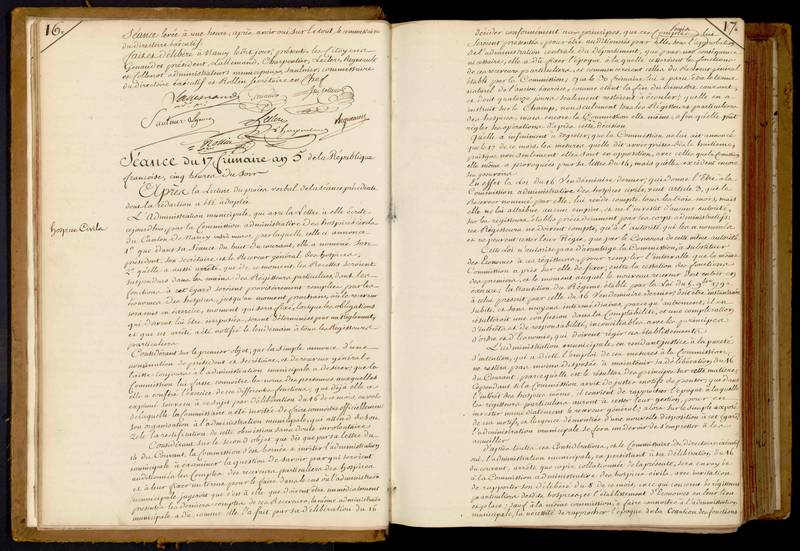 16.
Séance levée à une heure, après avoir ouï sur le tout, le commissaire
du directoire exécutif.
fait et délibéré à Nancy ledit jour, présents les citoyens
président, Lallemand, Charpentier, Leclerc,
et Collenot administrateurs municipaux, Saulnier commissaire
du directoire exécutif et Rollin, Secrétaire en Chef
Séance du 17 frimaire an 5 de la République
française, cinq heures du soir
Après la Lecture du procès verbal de la séance précédente
dont la rédaction a été adoptée
Hospices Civils
L'administration municipale, qui a vu la Lettre à elle écrite
aujourd'hui, par la Commission administrative des hospices civils
du Canton de Nancy, par laquelle, elle lui annonce
1° que dans sa séance du huit du courant, elle a nommé son
président, son secrétaire et le Receveur général des hospices;
2° qu'elle a aussi arrêté, que de ce moment, les Recettes seroient
suspendues dans les mains des Régisseurs particuliers, dont les
fonctions à cet égard seroient provisoirement remplies par les
économes des hospices, jusqu'au moment prochain, où le receveur
sera mis en exercice, moment qui sera fixé, lorsque les obligations
qui doivent lui être imposées, seront déterminées par un Règlement,
et que cet arrêté a été notifié le lendemain à tous les Régisseurs
particuliers
Considérant sur le premier objet, que la simple annonce d'une
nomination de président, de secrétaire, et de receveur général,
laisse toujours à l'administration municipale à désirer que la
Commission lui fasse connoitre les noms des personnes auxquelles
elle a confié l'exercice de ces différentes fonctions; que déjà elle a
exprimé son vœu à ce sujet par délibération du 16 de ce mois,
de laquelle la Commission a été invitée de faire connoitre officiellement
son organisation à l'administration municipale, qui attend de son
zèle la rectification de cette omission sans doute involontaire
Considérant sur le second objet que dès que par sa lettre du
14 du Courant, la Commission s'est bornée à inviter l'administration
municipale à examiner la question de savoir par qui seroient
auditionnés les Comptes des receveurs particuliers des hospices
et à leur fixer un terme pour le faire dans le cas où l'administration
municipale jugeroit que c'est à elle que doivent être immédiatement
présentés les derniers comptes de ces Receveurs, la même administration
municipale a dû, comme elle l'a fait par sa délibération du 16
17.
décider conformément aux principes, que ces Comptes lui
seroient présentés, pour être auditionnés par elle, sous l'approbation
de l'administration centrale du département, que par une conséquence
nécessaire, elle a dû fixer l'époque à laquelle cesseroient les fonctions
de ces receveurs particuliers, et commenceroient celles du Receveur général
établi par la Commission; que le 30 frimaire lui a paru être le terme
naturel de l'ancien exercice, comme étant la fin du bimestre courant,
et dont quatorze jours seulement restoient à écouler; qu'elle en a
instruit sur le Champ, non seulement tous les Régisseurs particuliers
des hospices, mais encore la Commission elle même, afin qu'elle put
régler ses opérations d'après cette décision
Qu'elle a infiniment à regretter, que la Commission ne lui ait annoncé
que le 17 de ce mois, les mesures qu'elle dit avoir prises dès le huitième,
puisque non seulement elles sont en opposition, avec celles que la Commission
elle même a provoquées par sa lettre du 14, mais qu'elles excèdent encore
ses pouvoirs
En effet la Loi du 16 Vendémiaire dernier, qui donne l'Être à la
Commission administrative des hospices civils, veut article 3, que le
Receveur nommé par elle, lui rende compte tous les trois mois, mais
elle ne lui attribue aucun empire, ni ne l'investit d'aucune autorité,
sur les régisseurs, établis précédemment par les corps administratifs;
ces Régisseurs ne doivent compte, qu'à l'autorité qui les a nommés
et ne peuvent cesser leurs Régies, que par le Concours de cette même autorité
Cette loi n'autorise pas d'avantage la Commission, à substituer
des Economes à ces régisseurs, pour remplir l'intervalle que la même
Commission a pris sur elle de fixer, entre la cessation des fonctions
des premiers, et le moment auquel le nouveau receveur doit entrer en
exercice; la transition du Régime établi par la Loi du
à celui prescrit par celle du 16 Vendémiaire dernier, doit être instantanée
subite, et sans moyens intermédiaires, parce qu'autrement, il en
résulteroit une confusion dans la Comptabilité, et une complication
d'intérêts et de responsabilité, inconciliables avec les principes
d'ordre et d'économie, qui doivent régir ces établissements.
L'administration municipale, en rendant justice à la pureté
d'intention, qui a dicté l'emploi de ces mesures à la Commission,
ne restera pas moins disposée à maintenir sa délibération du 16
du Courant, parce qu'elle est le résultat des principes sur cette matière;
Cependant si la Commission avoit de justes motifs de penser, que dans
l'intérêt des hospices même, il convient de rapprocher l'époque à laquelle
les régisseurs particuliers auront à cesser leur gestion, pour en
investir immédiatement le receveur général; alors sur le simple exposé
de ces motifs, et l'urgence démontrée d'une nouvelle disposition à cet égard,
l'administration municipale se fera un devoir de s'empresser à les
accueillir
d'après toutes ces Considérations, et le Commissaire du directoire exécutif
ouï, l'administration municipale, en persistant à sa délibération du 16
du courant, arrête que copie collationnée de la présente, sera envoyée
à la Commission administrative des hospices civils, avec invitation
de rapporter son délibéré du 8 de ce mois, en ce qui concerne les régisseurs
particuliers desdits hospices, et l'établissement d'Economes en leur lieu
et place; sauf à la même commission, à faire connoitre à l'administration
municipale, la nécessité de rapprocher l'époque de la Cessation des fonctions